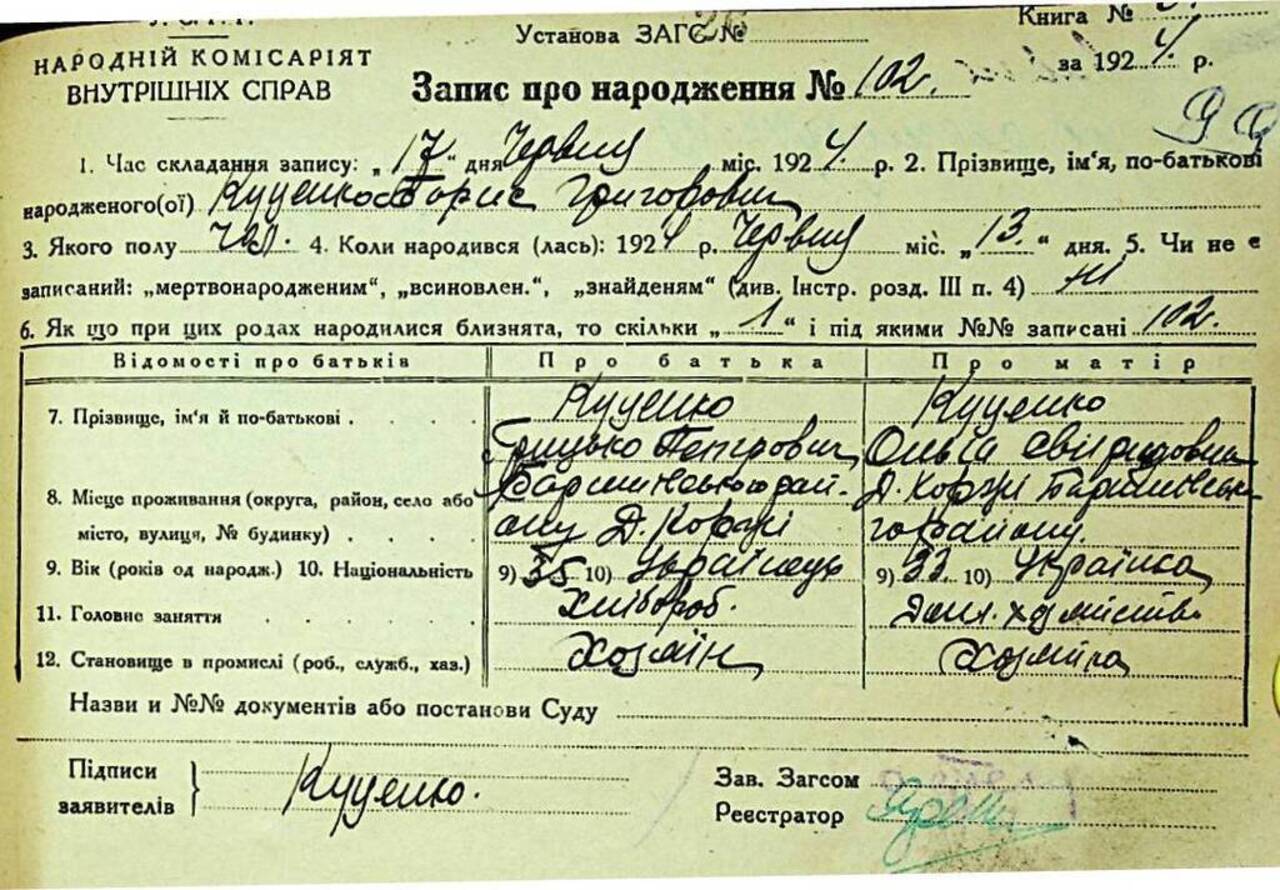 Установа ЗАГС №
Книга №
НАРОДНІЙ КОМІСАРІЯТ
ВНУТРІШНІХ СПРАВ
за 1924 р.
Запис про народження № 102.
1. Час складання запису: „17“ дня Червня міс. 1924. р. 2. Прізвище, ім'я, по-батькові
народженого(ої) Куценко Борис Григорович
3. Якого полу чол. 4. Коли народився (лась): 1924 р. Червня міс. „13.“ дня. 5. Чи не є
записаний: „мертвонародженим“, „всиновлен.“, „знайденям“ (див. Інстр. розд. III п. 4) ні
6. Як що при цих родах народилися близнята, то скільки „1“ і під якими №№ записані 102.
Відомості про батьків Про батька Про матір
7. Прізвище, ім'я й по-батькові . . . . Куценко Куценко
Грицько Петрович Ольга Свіридовна
8. Місце проживання (округа, район, село або Баришівського рай- Д. Коржі Баришівсь-
місто, вулиця, № будинку) . . . . ону Д. Коржі го району.
9. Вік (років од народж.) 10. Національність 9) 35 10) Українець 9) 33. 10) Українка
11. Головне заняття . . . . . Хлібороб. Дом. хозяйство
12. Становище в промислі (роб., служб., хаз.) Хозяїн Хозяйка
Назви и №№ документів або постанови Суду
Підписи
заявителів Куценко.
Зав. Загсом
Реєстратор